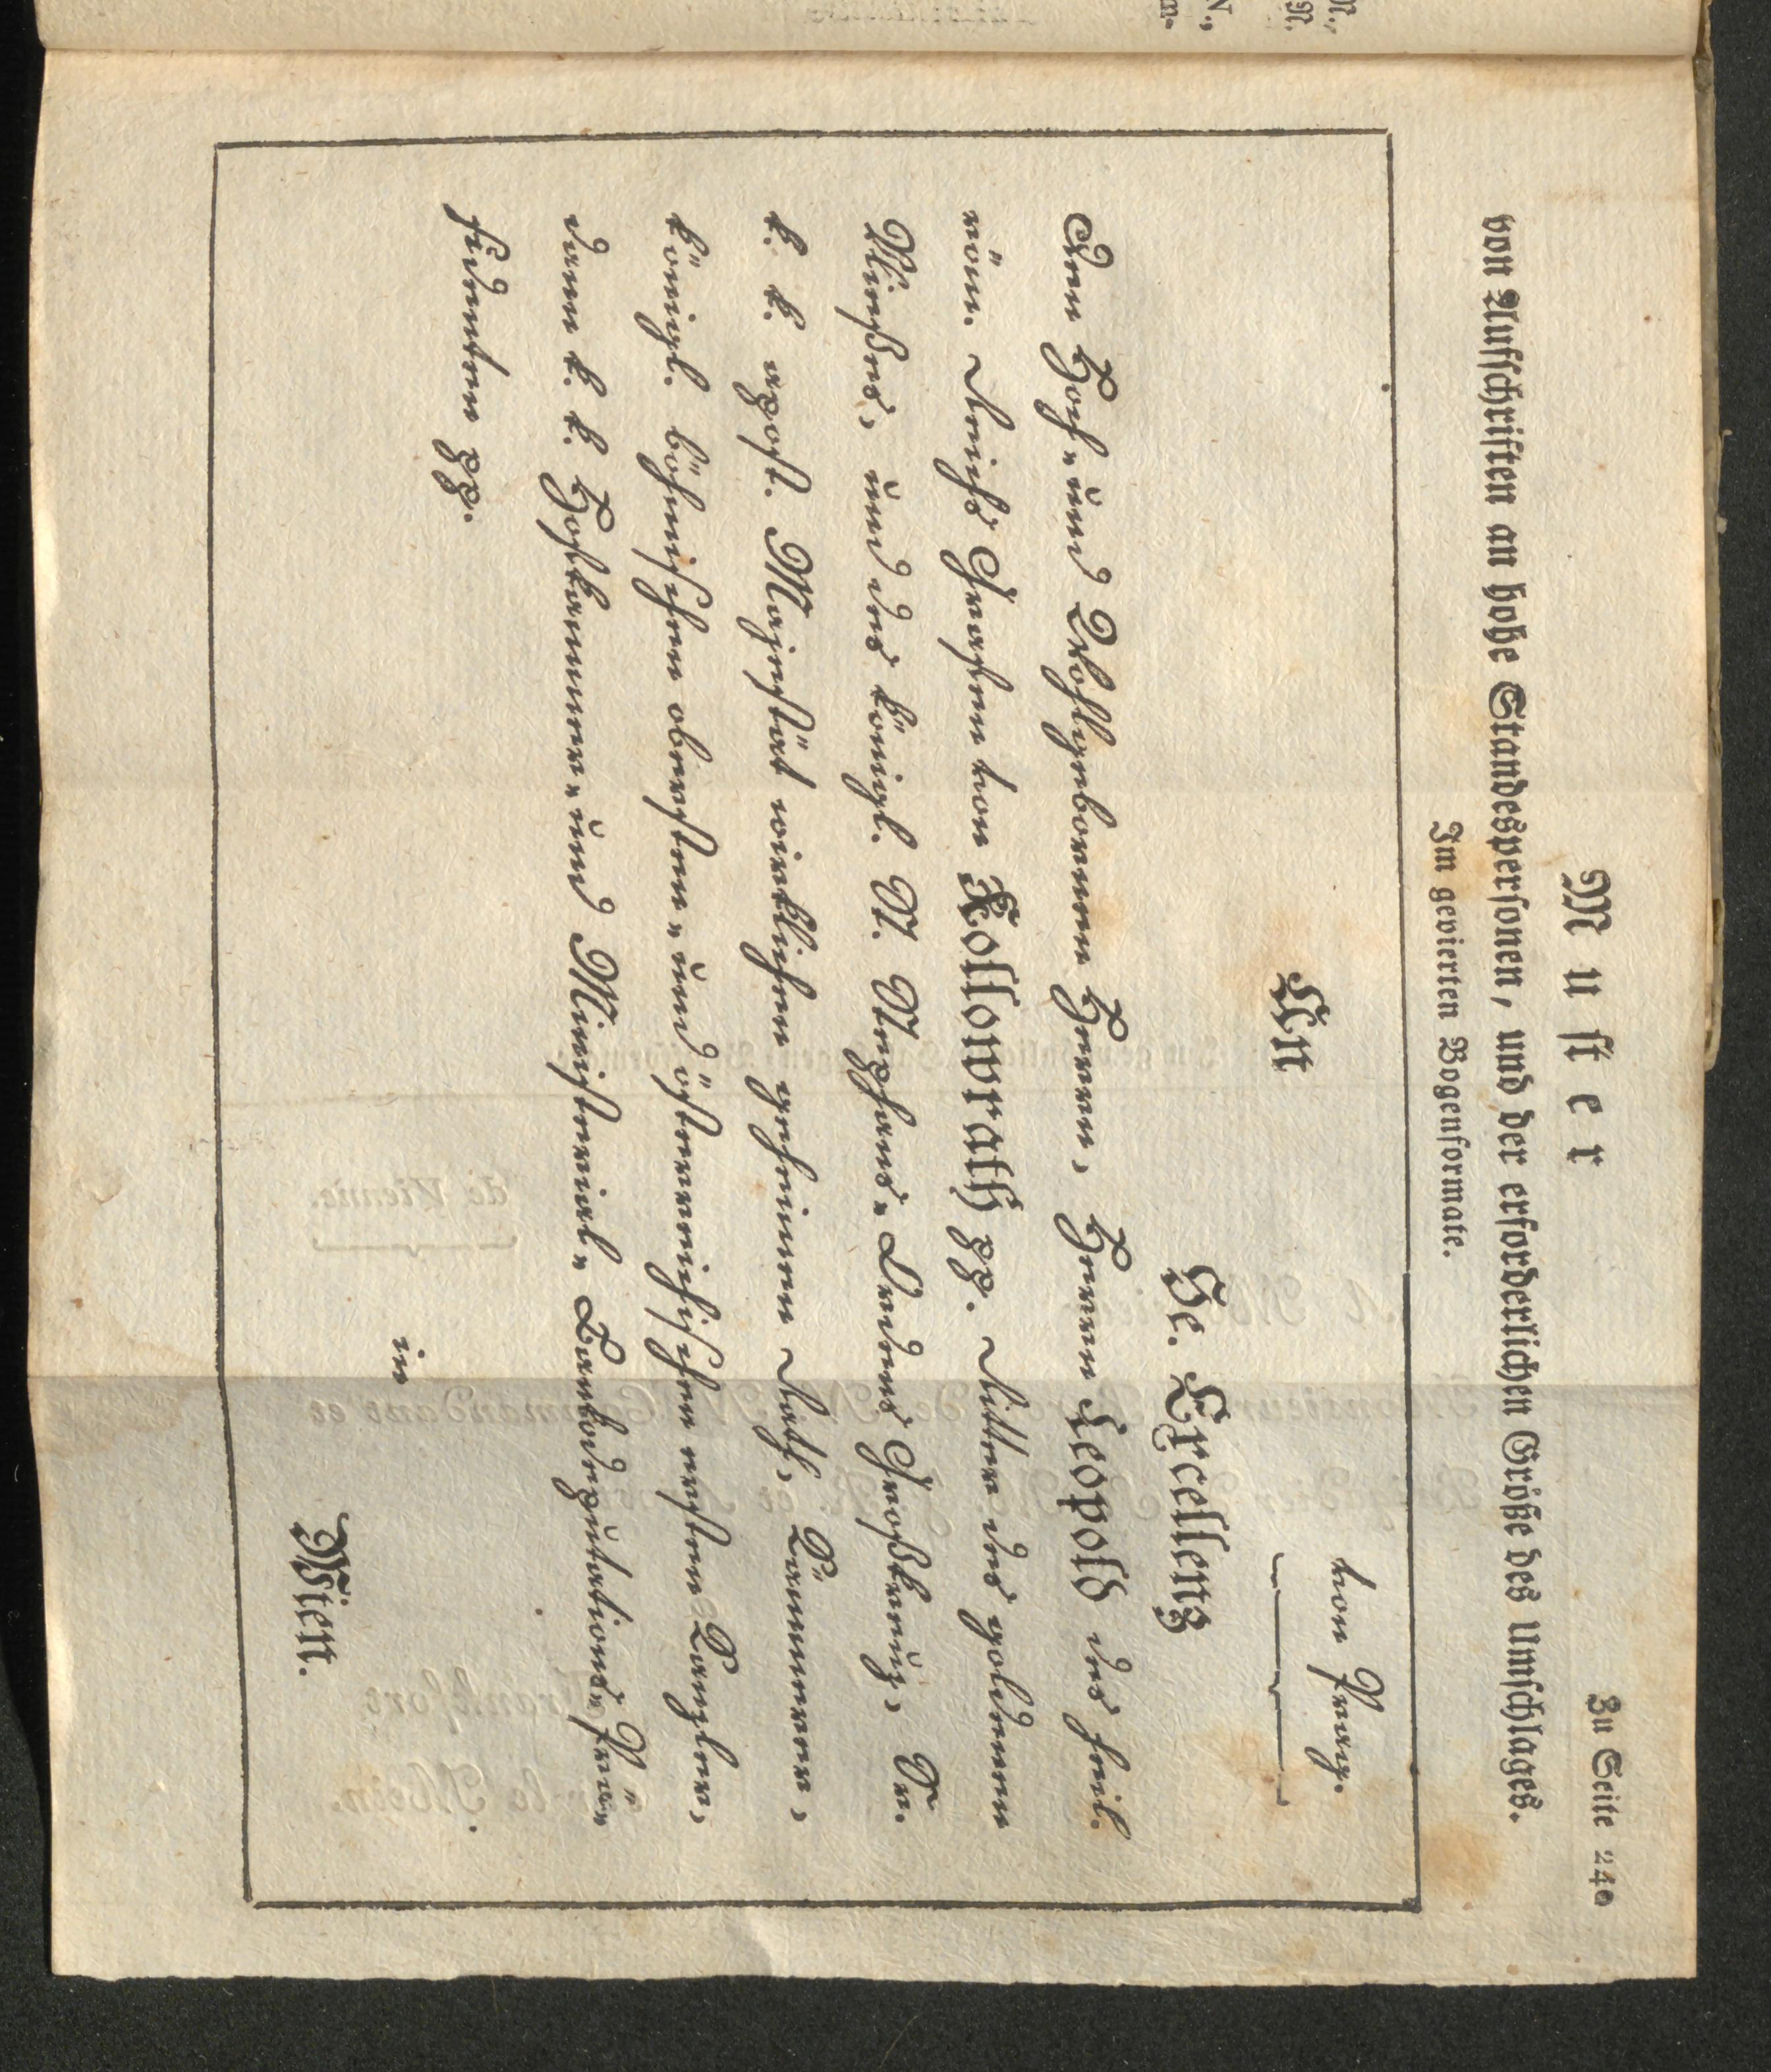 Zu Seite 240
Muster
von Aufschriften an hohe Standespersonen, und der erforderlichen Größe des Umschlages.
Im gevierten Bogenformate.
von Prag.
An
Se. Excellenz
Den Hoch- und Wohlgebornen Herrn, Herrn Leopold des heil.
röm. Reichs Grafen von Kollowrath ꝛc. Ritter des goldenen
Vließes, und des königl. St. Stephans-Ordens Großkreuz, Sr.
k. k. apost. Majestät wirklichen geheimen Rath, Kämmerer,
königl. böhmischen obersten- und österreichischen ersten Kanzler,
dann k. k. Hofkammer- und Ministerial-Bankodeputations-Prä-
sidenten ꝛc.
in
Wien.